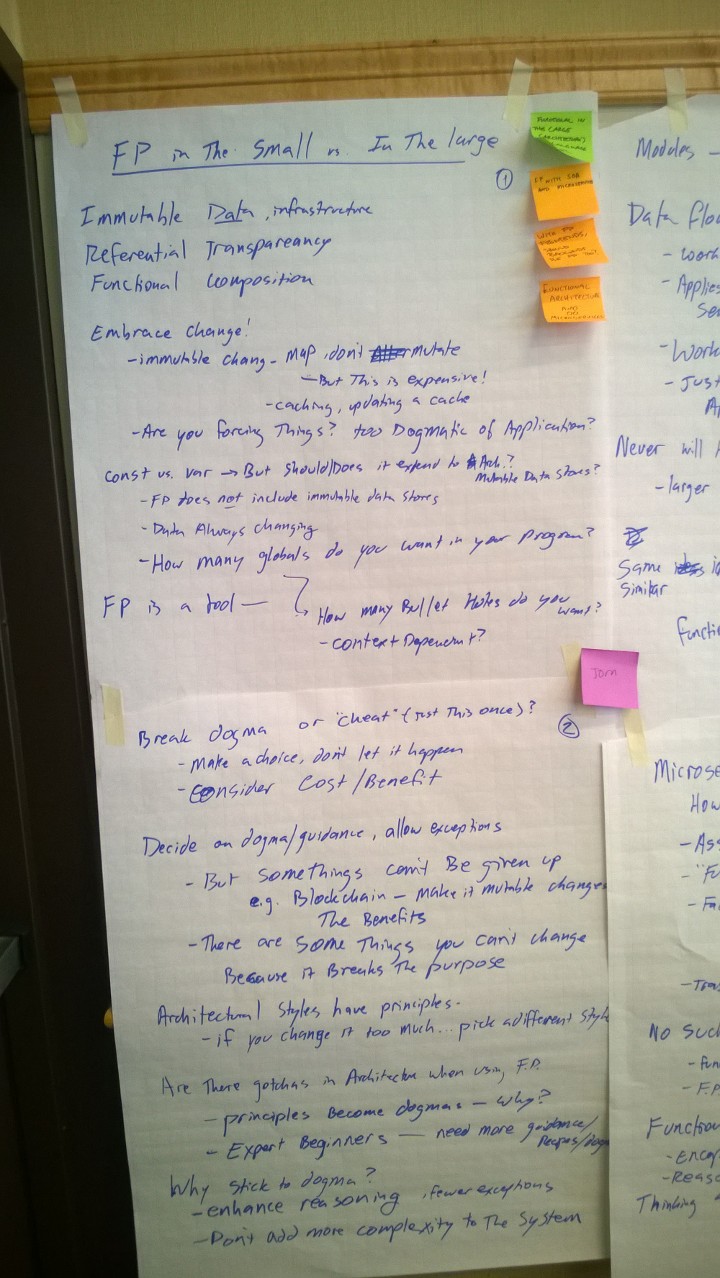 FP in The Small vs. In The Large
①
Immutable Data, infrastructure
Referential Transpareancy
Functional Composition
Embrace change!
- immutable chang - Map, don't mutate
- But This is expensive!
- caching, updating a cache
- Are you forcing Things? too Dogmatic of Application?
const vs. var → But should/Does it extend to Arch.?
Mutable Data Stores?
- FP does not include immutable data stores
- Data Always changing
- How many globals do you want in your program?
FP is a tool —
How many Bullet Holes do you want?
- context Dependent?
FUNCTIONAL IN
THE LARGE
(ARCHITECTURE)
FP WITH SOA
AND MICROSERVICES
WITH FP
FUNCTIONAL
ARCHITECTURE
AND
MICROSERVICES
Jorn
②
Break dogma or "cheat" (just This once)?
- Make a choice, don't let it happen
- Consider Cost/Benefit
Decide on dogma/guidance, allow exceptions
- But somethings can't Be given up
e.g. Blockchain - make it mutable changes
The Benefits
- There are some Things you can't change
Because it Breaks The purpose
Architectural Styles have principles.
- if you change it too much... pick a different style
Are There gotchas in Architecture when using F.P.
- principles Become dogmas - why?
- Expert Beginners — need more guidance/
Recipes/dogma
Why stick to dogma?
- enhance reasoning, fewer exceptions
- Don't add more complexity to The System
Modules -
Data flo
- work
- Applies
Se
- Work
- Just
A
Never will
- larger
Same
Similar
Functi
Microse
How
- Ass
- "Fu
- Fa
- Tra
No Such
- fun
- F.P.
Function
- Encap
- Reaso
Thinking